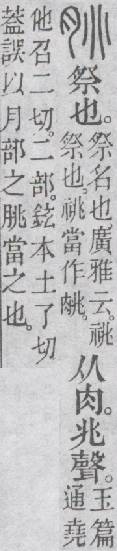 朓祭也。
祭名也廣雅云。祧
祭也。祧當作朓。
从肉。兆聲。
玉篇
通堯
他召二切。二部。鉉本土了切
蓋誤以月部之朓當之也。